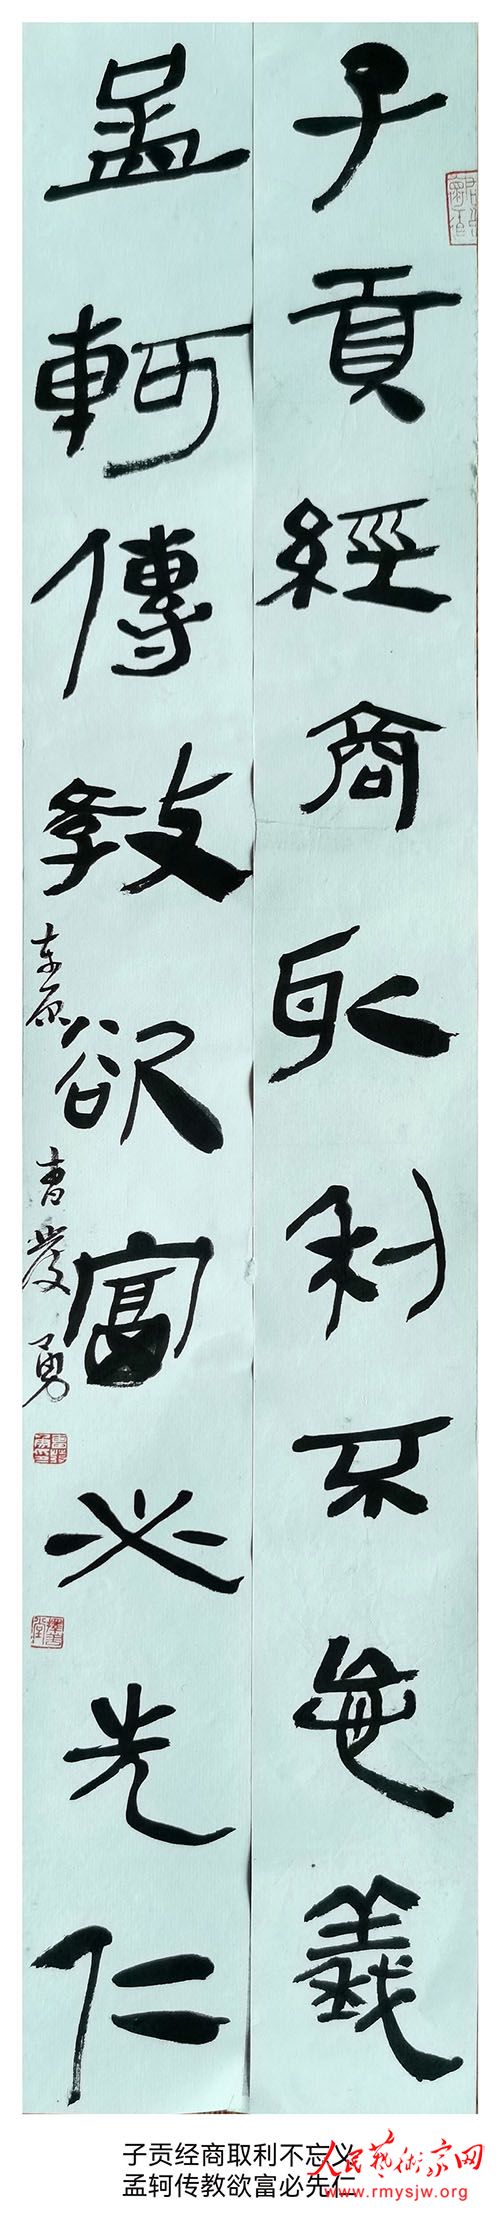 子貢經商取利不忘義
孟軻傳教欲富必先仁
东原 曹慶勇
子贡经商取利不忘义
孟轲传教欲富必先仁
人民藝術家网
www.rmysjw.org